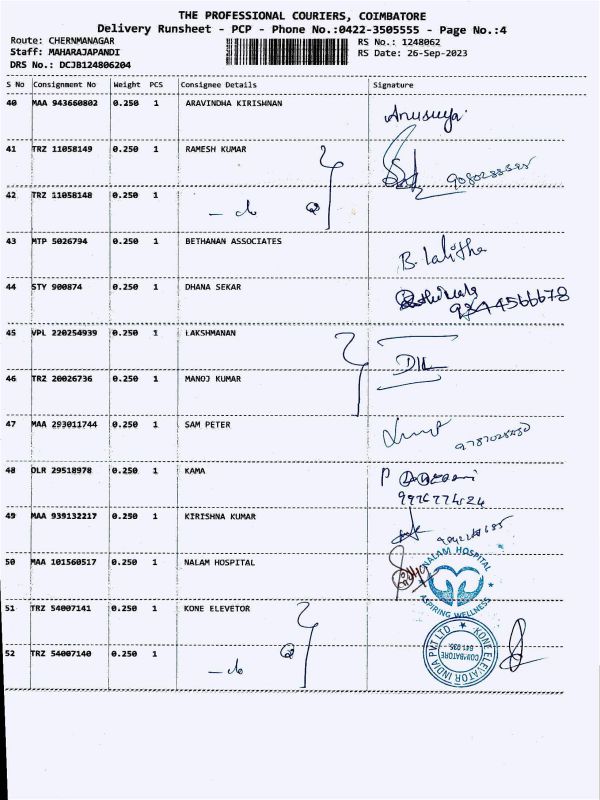 THE PROFESSIONAL COURIERS, COIMBATORE
Delivery Runsheet - PCP - Phone No.:0422-3505555 - Page No.:4
Route: CHERNMANAGAR
RS No.: 1248062
Staff: MAHARAJAPANDI
RS Date: 26-Sep-2023
DRS No.: DCJB124806204
S No Consignment No Weight PCS Consignee Details Signature
40 MAA 943660802 0.250 1 ARAVINDHA KIRISHNAN Anusuya
41 TRZ 11058149 0.250 1 RAMESH KUMAR
42 TRZ 11058148 0.250 1
- do
43 MTP 5026794 0.250 1 BETHANAN ASSOCIATES B. Lalitha
44 STY 900874 0.250 1 DHANA SEKAR
45 VPL 220254939 0.250 1 LAKSHMANAN
46 TRZ 20026736 0.250 1 MANOJ KUMAR
47 MAA 293011744 0.250 1 SAM PETER
48 DLR 29518978 0.250 1 KAMA P
49 MAA 939132217 0.250 1 KIRISHNA KUMAR
50 MAA 101560517 0.250 1 NALAM HOSPITAL
NALAM HOSPITAL
ASPIRING WELLNESS
51 TRZ 54007141 0.250 1 KONE ELEVETOR
KONE ELEVATOR INDIA PVT LTD
COIMBATORE
641 035
52 TRZ 54007140 0.250 1
- do